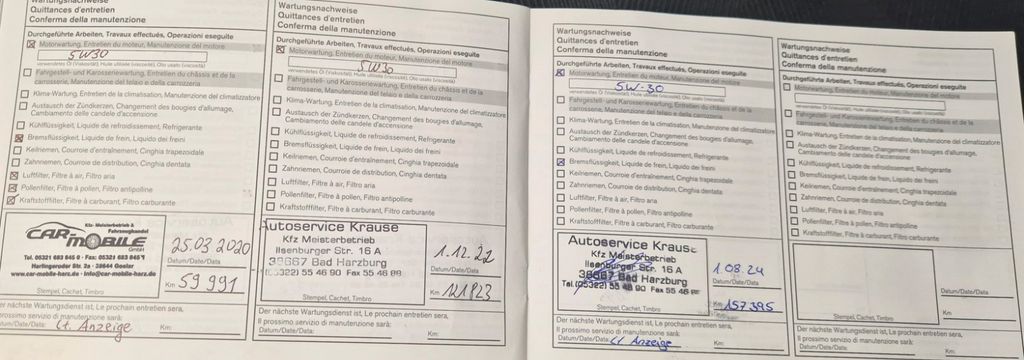 Wartungsnachweise
Quittances d'entretien
Conferma della manutenzione
Durchgeführte Arbeiten, Travaux effectués, Operazioni eseguite
Motorwartung, Entretien du moteur, Manutenzione del motore
5W30
verwendetes Öl (Viskosität), Huile utilisée (viscosité), Olio usato (viscosità)
Fahrgestell- und Karosseriewartung, Entretien du châssis et de la
carrosserie, Manutenzione del telaio e della carrozzeria
Klima-Wartung, Entretien de la climatisation, Manutenzione del climatizzatore
Austausch der Zündkerzen, Changement des bougies d'allumage,
Cambiamento delle candele d'accensione
Kühlflüssigkeit, Liquide de refroidissement, Refrigerante
Bremsflüssigkeit, Liquide de frein, Liquido dei freini
Keilriemen, Courroie d'entraînement, Cinghia trapezoidale
Zahnriemen, Courroie de distribution, Cinghia dentata
Luftfilter, Filtre à air, Filtro aria
Pollenfilter, Filtre à pollen, Filtro antipolline
Kraftstofffilter, Filtre à carburant, Filtro carburante
Kfz- Meisterbetrieb &
Fahrzeughandel
CAR-MOBILE
GmbH
Tel. 05321 683 845 0 · Fax: 05321 683 845 1
Harlingeroder Str. 2a · 38644 Goslar
www.car-mobile-harz.de · info@car-mobile-harz.de
Stempel, Cachet, Timbro
25.03 2020
Datum/Date/Data
Km 59 991
er nächste Wartungsdienst ist, Le prochain entretien sera,
prossimo servizio di manutenzione sarà:
atum/Date/Data: Lt. Anzeige Km:
Wartungsnachweise
Quittances d'entretien
Conferma della manutenzione
Durchgeführte Arbeiten, Travaux effectués, Operazioni eseguite
Motorwartung, Entretien du moteur, Manutenzione del motore
5W30
verwendetes Öl (Viskosität), Huile utilisée (viscosité), Olio usato (viscosità)
Fahrgestell- und Karosseriewartung, Entretien du châssis et de la
carrosserie, Manutenzione del telaio e della carrozzeria
Klima-Wartung, Entretien de la climatisation, Manutenzione del climatizzatore
Austausch der Zündkerzen, Changement des bougies d'allumage,
Cambiamento delle candele d'accensione
Kühlflüssigkeit, Liquide de refroidissement, Refrigerante
Bremsflüssigkeit, Liquide de frein, Liquido dei freini
Keilriemen, Courroie d'entraînement, Cinghia trapezoidale
Zahnriemen, Courroie de distribution, Cinghia dentata
Luftfilter, Filtre à air, Filtro aria
Pollenfilter, Filtre à pollen, Filtro antipolline
Kraftstofffilter, Filtre à carburant, Filtro carburante
Autoservice Krause
Kfz Meisterbetrieb
Ilsenburger Str. 16 A
38667 Bad Harzburg
05322) 55 46 90 Fax 55 46 88
Stempel, Cachet, Timbro
Datum/Date/Data
Km 121823
Der nächste Wartungsdienst ist, Le prochain entretien sera,
Il prossimo servizio di manutenzione sarà:
Datum/Date/Data: Km:
Wartungsnachweise
Quittances d'entretien
Conferma della manutenzione
Durchgeführte Arbeiten, Travaux effectués, Operazioni eseguite
Motorwartung, Entretien du moteur, Manutenzione del motore
5W-30
verwendetes Öl (Viskosität), Huile utilisée (viscosité), Olio usato (viscosità)
Fahrgestell- und Karosseriewartung, Entretien du châssis et de la
carrosserie, Manutenzione del telaio e della carrozzeria
Klima-Wartung, Entretien de la climatisation, Manutenzione del climatizzatore
Austausch der Zündkerzen, Changement des bougies d'allumage,
Cambiamento delle candele d'accensione
Kühlflüssigkeit, Liquide de refroidissement, Refrigerante
Bremsflüssigkeit, Liquide de frein, Liquido dei freini
Keilriemen, Courroie d'entraînement, Cinghia trapezoidale
Zahnriemen, Courroie de distribution, Cinghia dentata
Luftfilter, Filtre à air, Filtro aria
Pollenfilter, Filtre à pollen, Filtro antipolline
Kraftstofffilter, Filtre à carburant, Filtro carburante
Autoservice Krause
Kfz Meisterbetrieb
Ilsenburger Str. 16 A
38667 Bad Harzburg
Tel. (05322) 55 46 90 Fax 55 46 88
Stempel, Cachet, Timbro
1 08.24
Datum/Date/Data
Km 157395
Der nächste Wartungsdienst ist, Le prochain entretien sera,
Il prossimo servizio di manutenzione sarà:
Datum/Date/Data: Lt Anzeige Km:
Wartungsnachweise
Quittances d'entretien
Conferma della manutenzione
Durchgeführte Arbeiten, Travaux effectués, Operazioni eseguite
Motorwartung, Entretien du moteur, Manutenzione del motore
verwendetes Öl (Viskosität), Huile utilisée (viscosité), Olio usato (viscosità)
Fahrgestell- und Karosseriewartung, Entretien du châssis et de la
carrosserie, Manutenzione del telaio e della carrozzeria
Klima-Wartung, Entretien de la climatisation, Manutenzione del climatizzatore
Austausch der Zündkerzen, Changement des bougies d'allumage,
Cambiamento delle candele d'accensione
Kühlflüssigkeit, Liquide de refroidissement, Refrigerante
Bremsflüssigkeit, Liquide de frein, Liquido dei freini
Keilriemen, Courroie d'entraînement, Cinghia trapezoidale
Zahnriemen, Courroie de distribution, Cinghia dentata
Luftfilter, Filtre à air, Filtro aria
Pollenfilter, Filtre à pollen, Filtro antipolline
Kraftstofffilter, Filtre à carburant, Filtro carburante
Stempel, Cachet, Timbro
Datum/Date/Data
Km
Der nächste Wartungsdienst ist, Le prochain entretien sera,
Il prossimo servizio di manutenzione sarà:
Datum/Date/Data: Km: